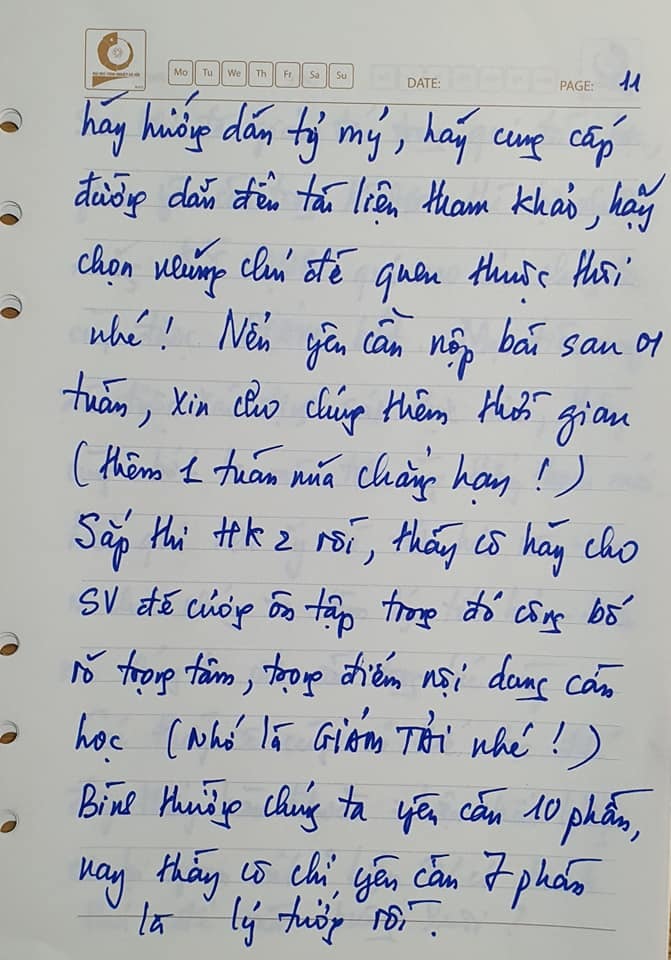 Mo Tu We Th Fr Sa Su DATE: PAGE: 11
hãy hướng dẫn tỷ mỷ, hãy cung cấp
đường dẫn đến tài liệu tham khảo, hãy
chọn những chủ đề quen thuộc thôi
nhé! Nếu yêu cầu nộp bài sau 01
tuần, xin cho chúng thêm thời gian
(thêm 1 tuần nữa chẳng hạn!)
Sắp thi HK2 rồi, thầy cô hãy cho
SV đề cương ôn tập trong đó công bố
rõ trọng tâm, trọng điểm nội dung cần
học (Nhớ là GIẢM TẢI nhé!)
Bình thường chúng ta yêu cầu 10 phần,
nay thầy cô chỉ yêu cầu 7 phần
là lý tưởng rồi.